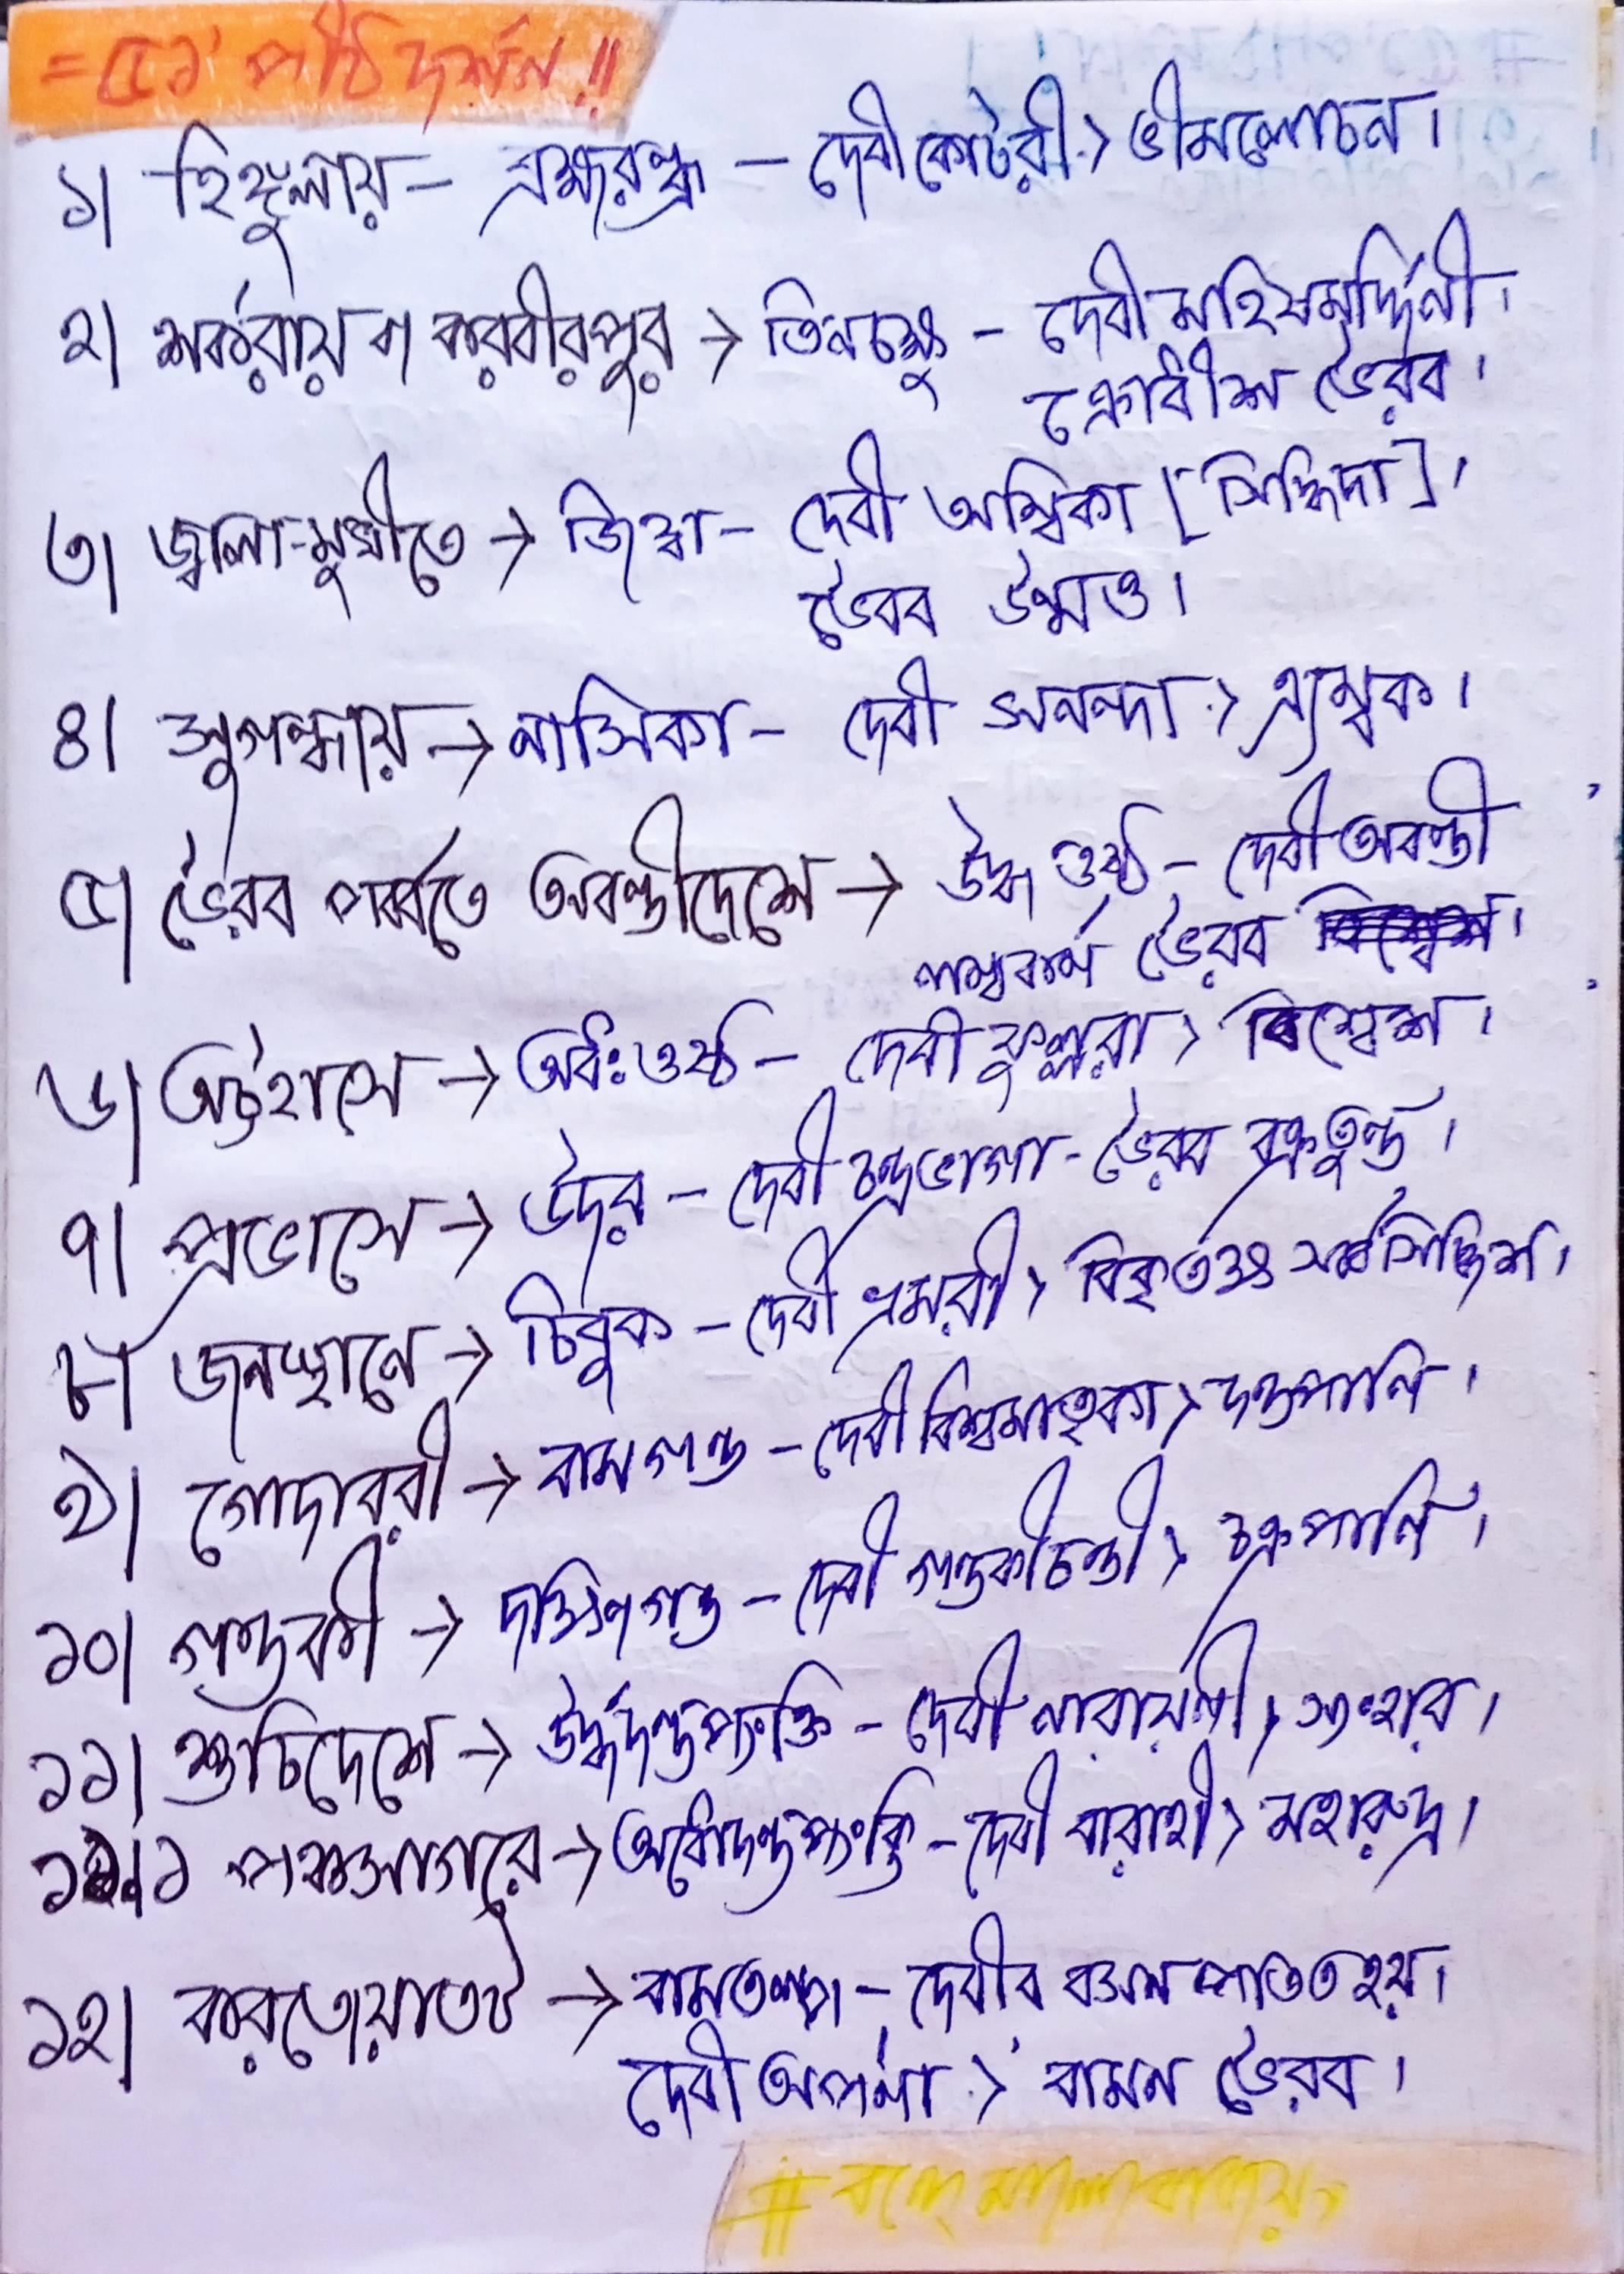 = ৫১ পীঠ দর্শন !!
১| হিঙ্গুলায় – ব্রহ্মরন্ধ্র – দেবী কোটরী > ভীমলোচন।
২| শর্করায় বা করবীরপুর → তিনচক্ষু – দেবী মহিষমর্দ্দিনী।
ক্রোধীশ ভৈরব।
৩| জ্বলা-মুখীতে → জিহ্বা – দেবী অম্বিকা [সিদ্ধিদা]।
ভৈরব উন্মত্ত।
৪| সুগন্ধায় → নাসিকা – দেবী সুনন্দা > ত্র্যম্বক।
৫| ভৈরব পর্ব্বতে অবন্তীদেশে → উর্দ্ধ ওষ্ঠ – দেবী অবন্তী
লম্বকর্ণ ভৈরব
৬| অট্টহাসে → অধঃওষ্ঠ – দেবী ফুল্লরা > বিশ্বেশ।
৭| প্রভাসে → উদর – দেবী চন্দ্রভাগা - ভৈরব বক্রতুন্ড।
৮| জনস্থানে → চিবুক – দেবী ভ্রমরী > বিকৃতাক্ষ সর্বসিদ্ধিশ।
৯| গোদাবরী → বামগন্ড – দেবী বিশ্বমাতৃকা > দন্ডপানি।
১০| গন্ডকী → দক্ষিণগন্ড – দেবী গন্ডকীচন্ডী > চক্রপানি।
১১| শুচিদেশে → উর্দ্ধদন্তপংক্তি – দেবী নারায়ণী > সংহার।
১১.১ পঞ্চসাগরে → অধোদন্তপংক্তি – দেবী বারাহী > মহারুদ্র।
১২| করতোয়াতট → বামতল্প – দেবীর বসন পতিত হয়।
দেবী অপর্ণা > বামন ভৈরব।